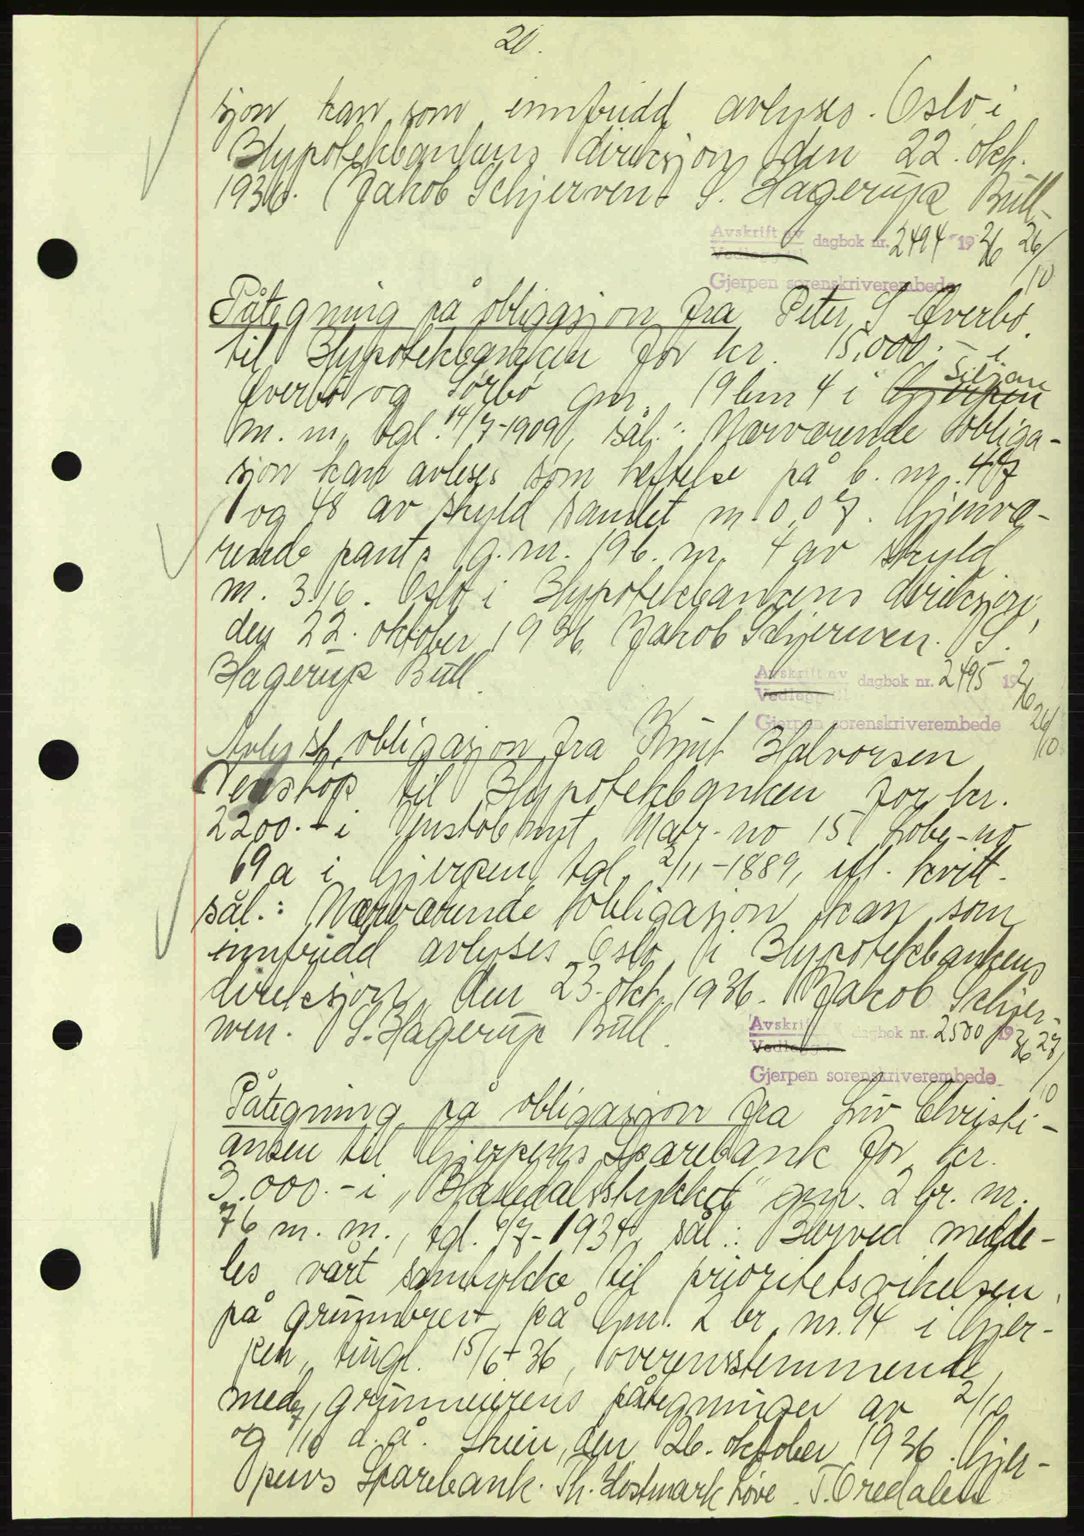 20.
sjon kan som innfridd avlyses. Oslo i
Hypotekbankens direksjon den 22. okt.
1936. Jakob Schjerven. S. Hagerup Bull.
Avskrift av
Vedlegg til dagbok nr. 2494 1936 26/10
Gjerpen sorenskriverembede
Påtegning på obligasjon fra Peter S. Øverbø
til Hypotekbanken for kr. 15.000.- i
Øverbø og Sørbø gnr. 19 bnr 4 i Gjerpen Siljan
m. m., tgl. 14/7-1909, sål.: Nærværende obliga-
sjon kan avleses som heftelse på b. nr. 47
og 48 av skyld samlet m. 0.07. Gjenvæ-
rende pant: g. nr. 19 b. nr. 4 av skyld
m. 3.16. Oslo i Hypotekbankens direksjon,
den 22. oktober 1936. Jakob Schjerven. S.
Hagerup Bull.
Avskrift av
Vedlegg til dagbok nr. 2495 1936 26/10
Gjerpen sorenskriverembede
Avlyst obligasjon fra Knut Halvorsen
Venstøp til Hypotekbanken for kr.
2200.- i Venstøb nyt. Matr. no 15 Løbe-no
69a i Gjerpen tgl. 2/11-1889, efl. kvitt.
sål.: Nærværende obligasjon kan som
innfridd avlyses. Oslo i Hypotekbankens
direksjon, den 23. okt. 1936. Jakob Schjer-
ven. S. Hagerup Bull.
Avskrift av
Vedlegg til dagbok nr. 2500 1936 27/10
Gjerpen sorenskriverembede
Påtegning på obligasjon fra Liv Christi-
ansen til Gjerpens Sparebank for kr.
3.000.- i "Hasedalsstykket" gnr. 2 br. nr.
76 m. m., tgl. 6/7-1934, sål.: Herved medde-
les vårt samtykke til prioritetsvikelsen
på grunnbrev på gnr. 2 br. nr. 94 i Gjer-
pen, tingl. 15/6-36, overensstemmende
med grunneierens påtegninger av 2/10
og /10 d. å. Skien, den 26. oktober 1936. Gjer-
pens Sparebank. Th. Høstmark Løve. T. Oredalen